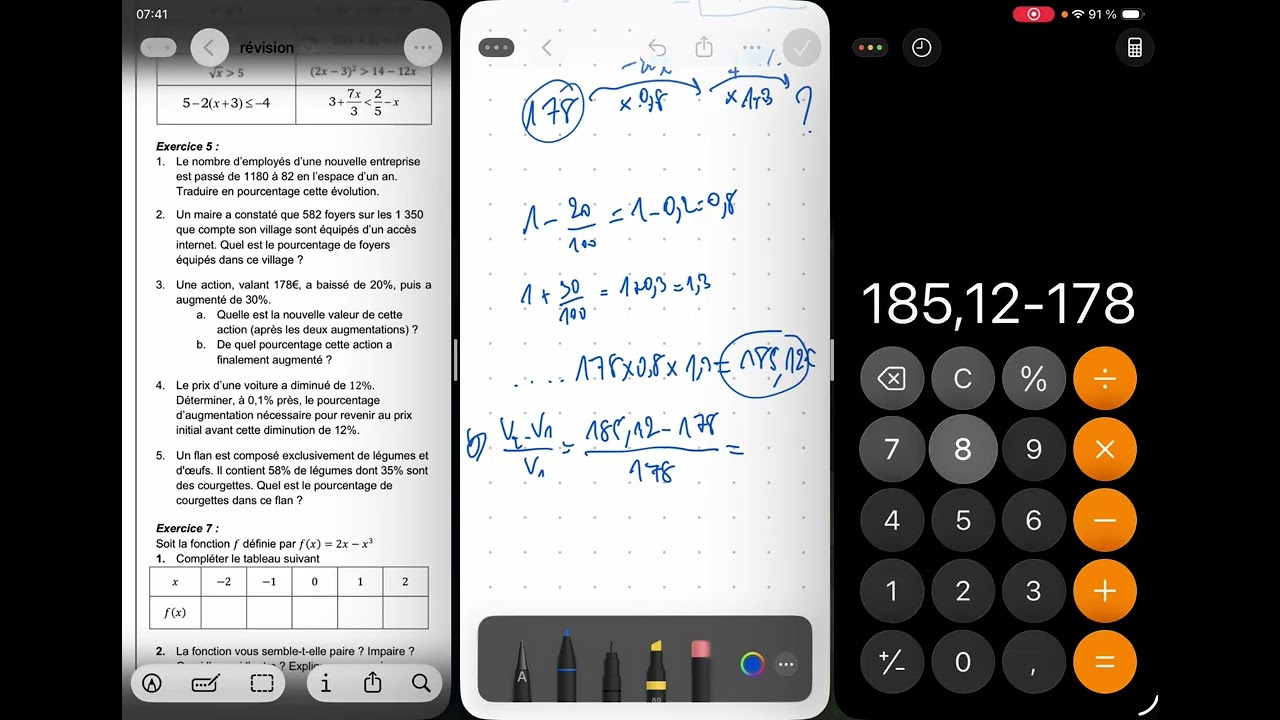 07:41
révision
√x > 5
(2x − 3)² > 14 − 12x
5 − 2(x + 3) ≤ −4
3 + 7x/3 < 2/5 − x
Exercice 5 :
1. Le nombre d'employés d'une nouvelle entreprise
est passé de 1180 à 82 en l'espace d'un an.
Traduire en pourcentage cette évolution.
2. Un maire a constaté que 582 foyers sur les 1 350
que compte son village sont équipés d'un accès
internet. Quel est le pourcentage de foyers
équipés dans ce village ?
3. Une action, valant 178€, a baissé de 20%, puis a
augmenté de 30%.
a. Quelle est la nouvelle valeur de cette
action (après les deux augmentations) ?
b. De quel pourcentage cette action a
finalement augmenté ?
4. Le prix d'une voiture a diminué de 12%.
Déterminer, à 0,1% près, le pourcentage
d'augmentation nécessaire pour revenir au prix
initial avant cette diminution de 12%.
5. Un flan est composé exclusivement de légumes et
d'œufs. Il contient 58% de légumes dont 35% sont
des courgettes. Quel est le pourcentage de
courgettes dans ce flan ?
Exercice 7 :
Soit la fonction f définie par f(x) = 2x − x³
1. Compléter le tableau suivant
x −2 −1 0 1 2
f(x)
2. La fonction vous semble-t-elle paire ? Impaire ?
178 × 0,8 × 1,3 ?
1 − 20/100 = 1 − 0,2 = 0,8
1 + 30/100 = 1+0,3 = 1,3
..... 178 × 0,8 × 1,3 = 185,12€
b) = 185,12 − 178 / 178 =
A
80
91 %
185,12−178
C % ÷
7 8 9 ×
4 5 6 −
1 2 3 +
+/− 0 , =